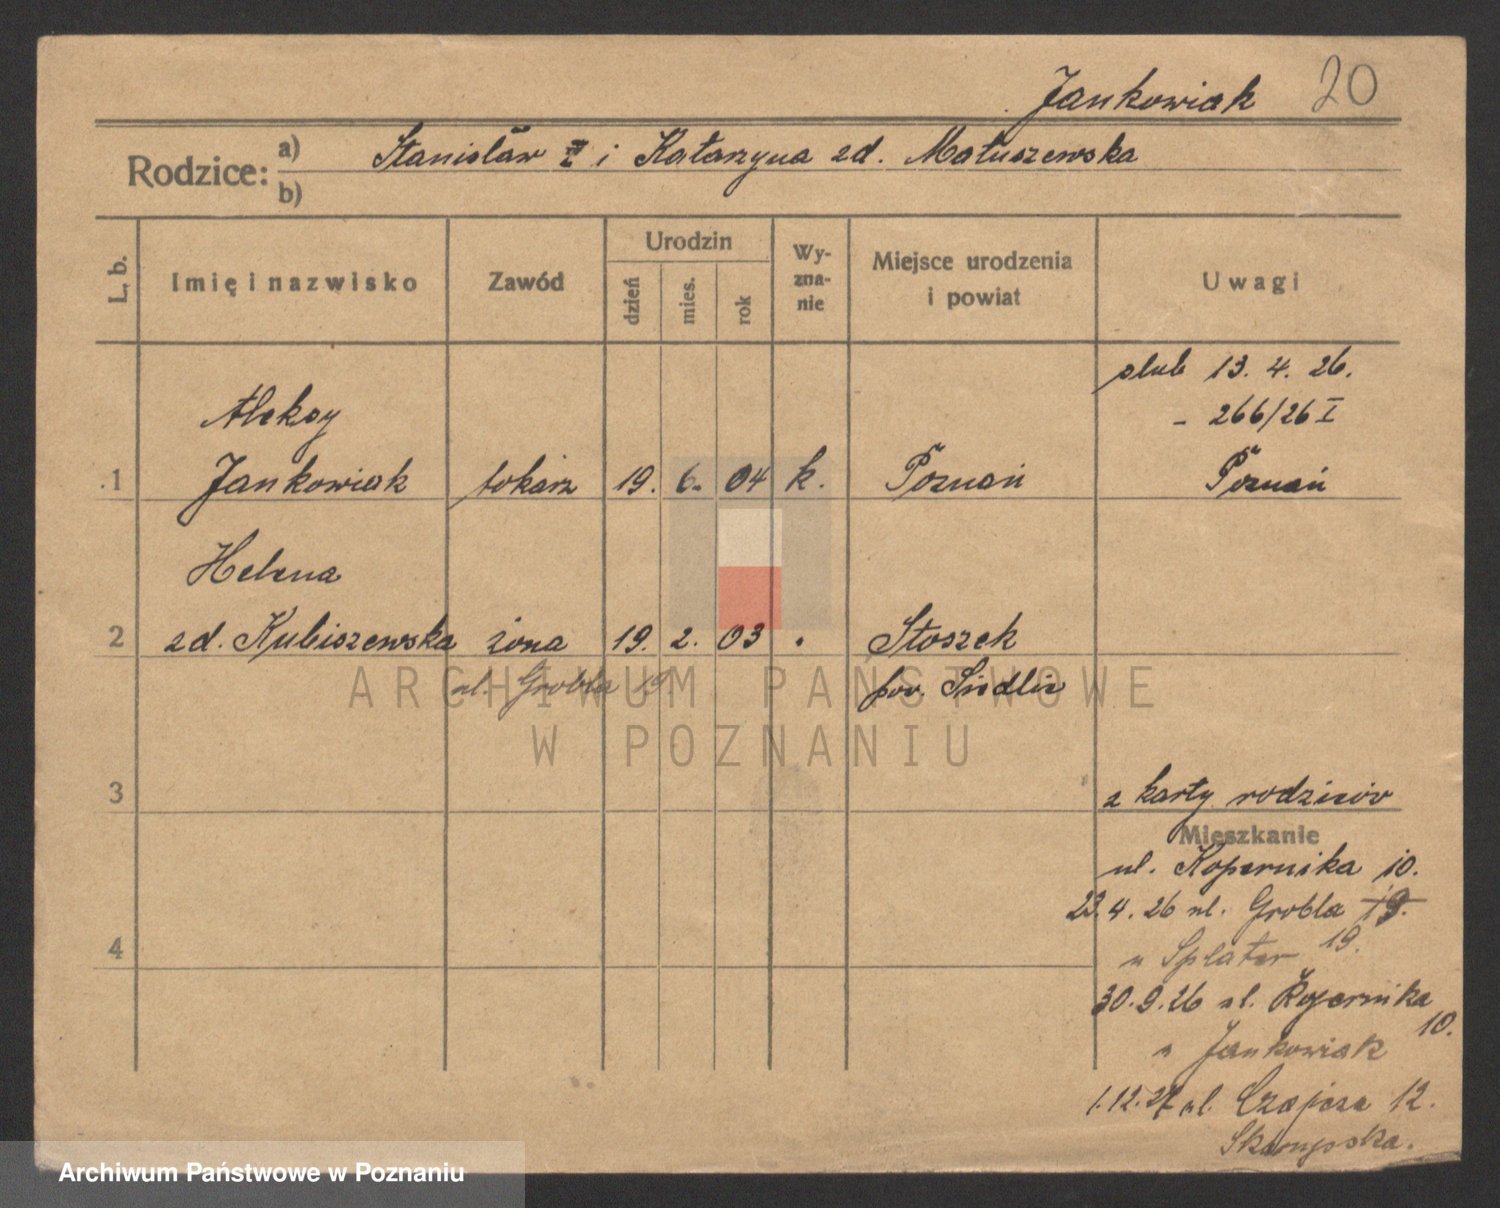 Jankowiak 20
Rodzice: a) Stanisław i Katarzyna zd. Matuszewska
b)
L. b. Imię i nazwisko Zawód Urodzin dzień mies. rok Wy-zna-nie Miejsce urodzenia i powiat Uwagi
ślub 13. 4. 26.
Aleksy
- 266/26 I
1 Jankowiak tokarz 19. 6. 04 k. Poznań Poznań
Helena
2 zd. Kubiszewska żona 19. 2. 03 . Stoszek
ul. Grobla 19 pow. Siedlce
ARCHIWUM PAŃSTWOWE
W POZNANIU
3 z karty rodziców
Mieszkanie
ul. Kopernika 10.
23.4.26 ul. Grobla 19.
4 u Splater 19.
30.9.26 ul. Kopernika 10.
u Jankowiak
1.12.27 ul. Czajcza 12.
Archiwum Państwowe w Poznaniu